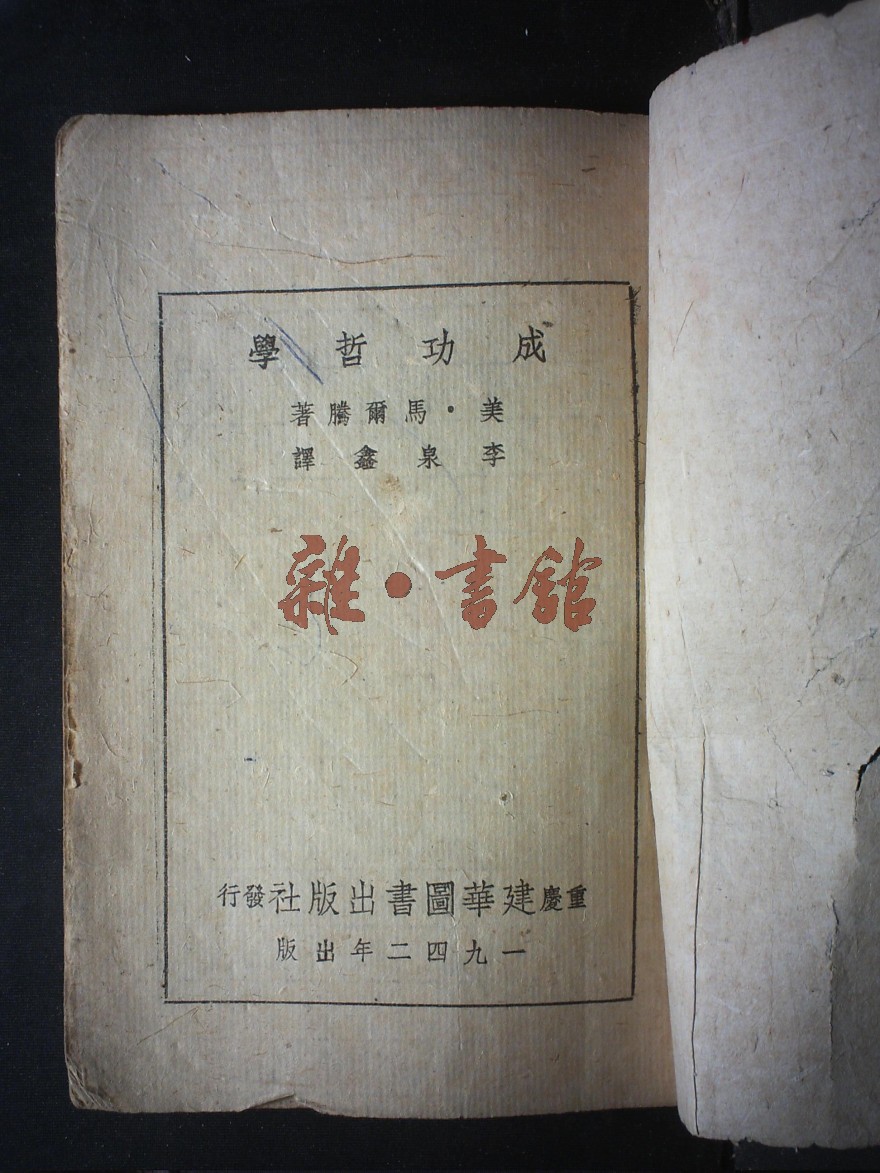 成功哲學
美·馬爾騰著
李泉鑫譯
雜·書館
重慶建華圖書出版社發行
一九四二年出版